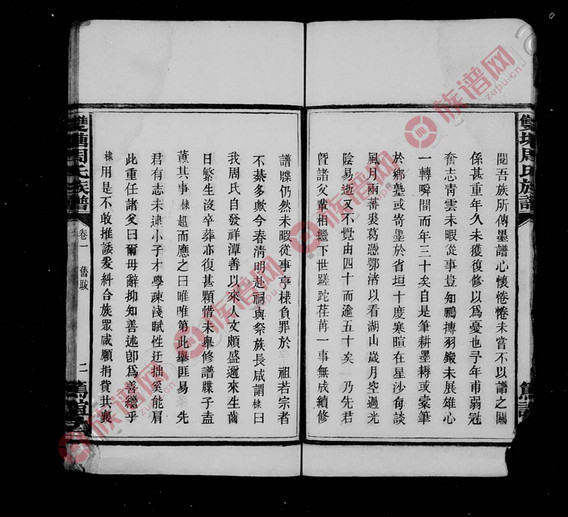 雙塘周氏族譜
閱吾族所傳墨譜心懷倦倦未嘗不以譜之關
係甚重年久未獲復修以爲憂也予年甫弱冠
奮志青雲未暇從事豈知鵬摶羽鎩未展雄心
一轉瞬間而年三十矣自是筆耕墨耨或槖筆
於鄉塾或寄墨於省垣十度寒暄在星沙角談
風月兩番裘葛憑鄂渚以看湖山歲月空過光
陰易逝又不覺由四十而逾五十矣乃先君
曁諸父輩相繼下世蹉跎荏苒一事無成續修
譜牒仍然未暇從事亨樣負罪於 祖若宗者
不綦多歟今春清明赴祠與祭族長咸謂樣曰
我周氏自發祥潭善以來人文頗盛邇來生齒
日繁生沒卒葬亦復甚顯惜未舉修譜牒子盍
董其事樣起應之曰唯唯第此舉匪易 先
君有志未逮小子才學疎淺賦性迂拙奚能肩
此重任諸父曰爾毋辭抑知善述卽爲善繼乎
樣用是不敢推諉爰糾合族眾咸願捐貲共襄
雙塘周氏族譜
卷一 舊跋
二
族谱网
zupu.cn